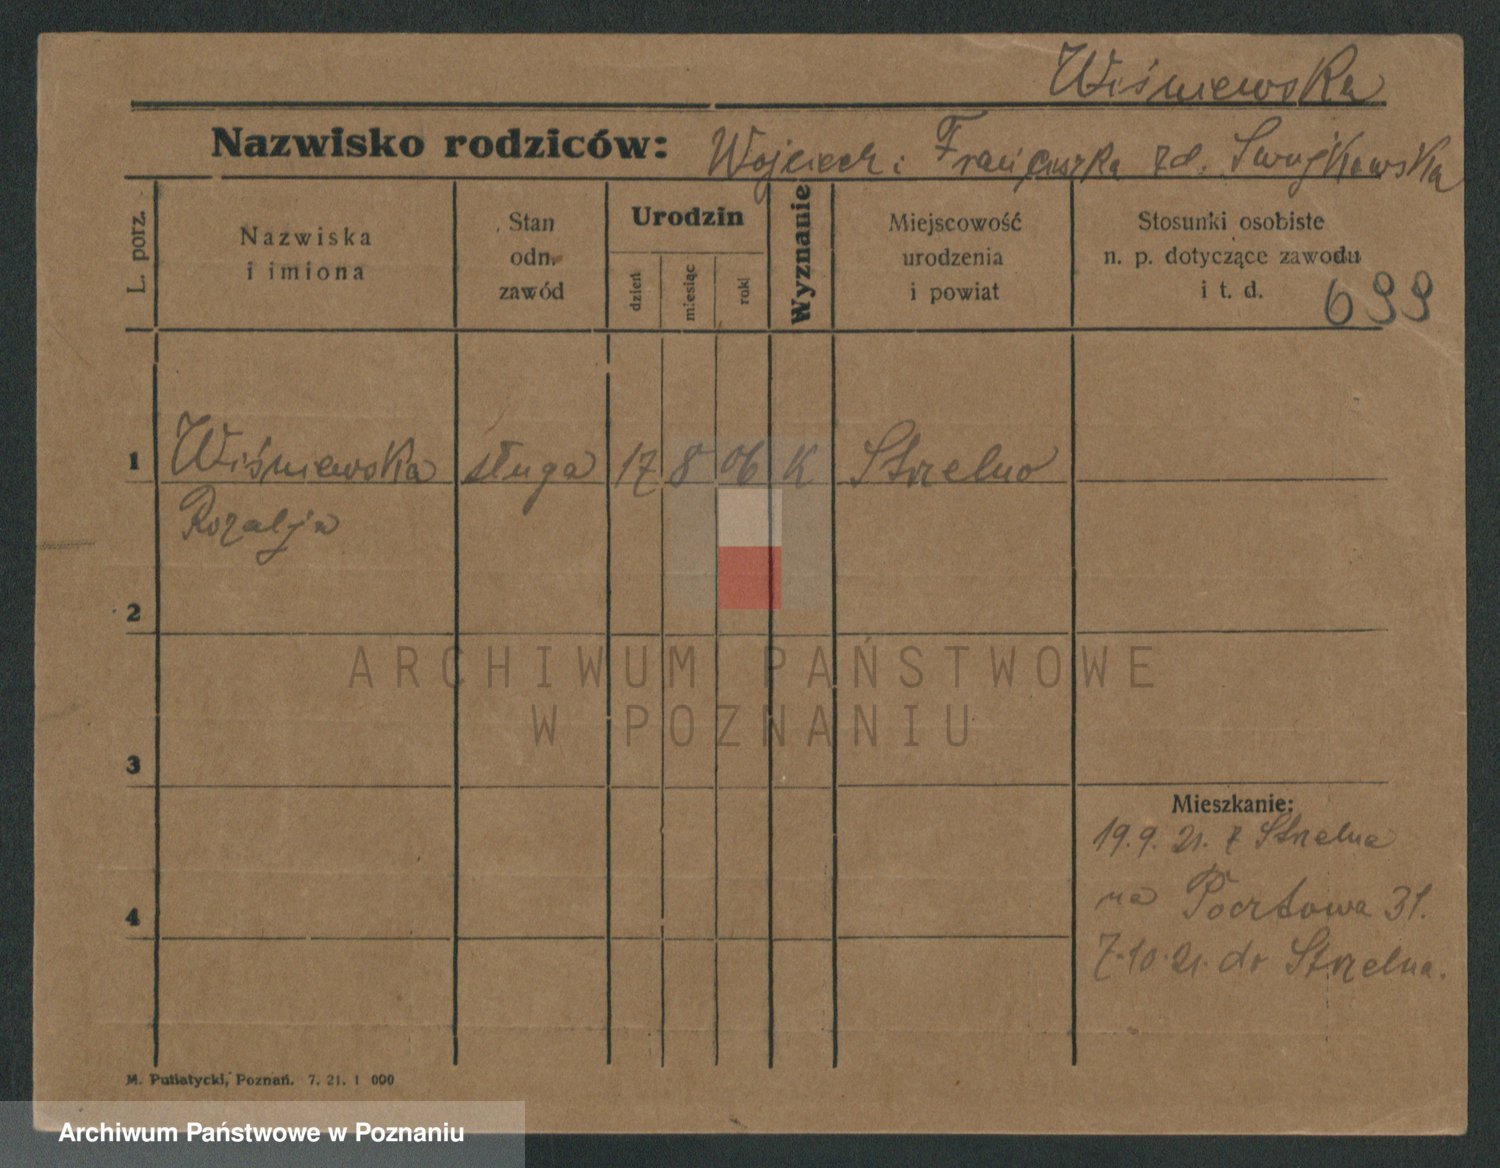 Wiśniewska
Nazwisko rodziców: Wojciech i Franciszka zd.
L. porz.
Nazwiska
i imiona
Stan
odn.
zawód
Urodzin
dzień
miesiąc
rok
Wyznanie
Miejscowość
urodzenia
i powiat
Stosunki osobiste
n. p. dotyczące zawodu
i t. d.
699
1 Wiśniewska sługa 17 8 06 K Strzelno
Rozalja
2
ARCHIWUM PAŃSTWOWE
W POZNANIU
3
Mieszkanie:
19.9.21. z Strzelna
na Pocztowa 31.
4
7.10.21. do Strzelna.
M. Putiatycki, Poznań. 7. 21. 1 000
Archiwum Państwowe w Poznaniu